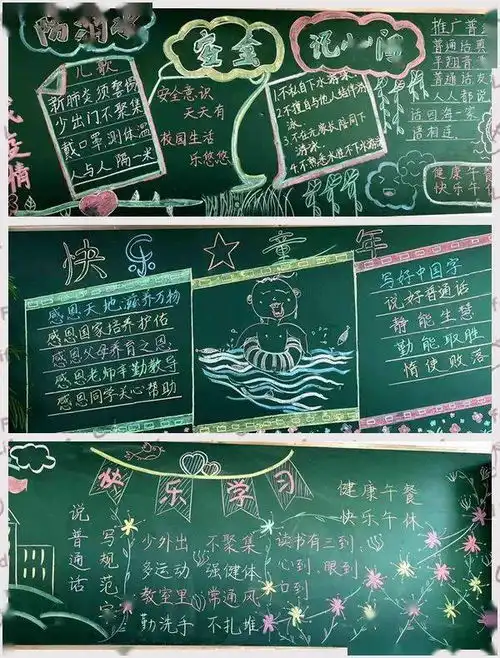 防溺水
安全
记心间
推广普
儿歌
新肺炎须警惕
少出门不聚集
戴口罩测体温
人与人隔一米
疫情
安全意识
天天有
校园生活
乐悠悠
1.不私自下水游泳
2.不擅自与他人结伴游
泳
3.不在无家长陪同下
游泳
4.不熟悉水性不下水
普通话
普通话友
人人都说
话四海一家
请相连
健康午
快乐午休
快乐☆童年
感恩天地滋养万物
感恩国家培养护佑
感恩父母养育之恩
感恩老师辛勤教导
感恩同学关心帮助
写好中国字
说好普通话
静能生慧
勤能取胜
惰使败落
快乐学习
说普通话
写规范字
少外出 不聚集
多运动 强健体
教室里 常通风
勤洗手 不扎堆
读书有三到
心到、眼到
口到
健康午餐
快乐午休